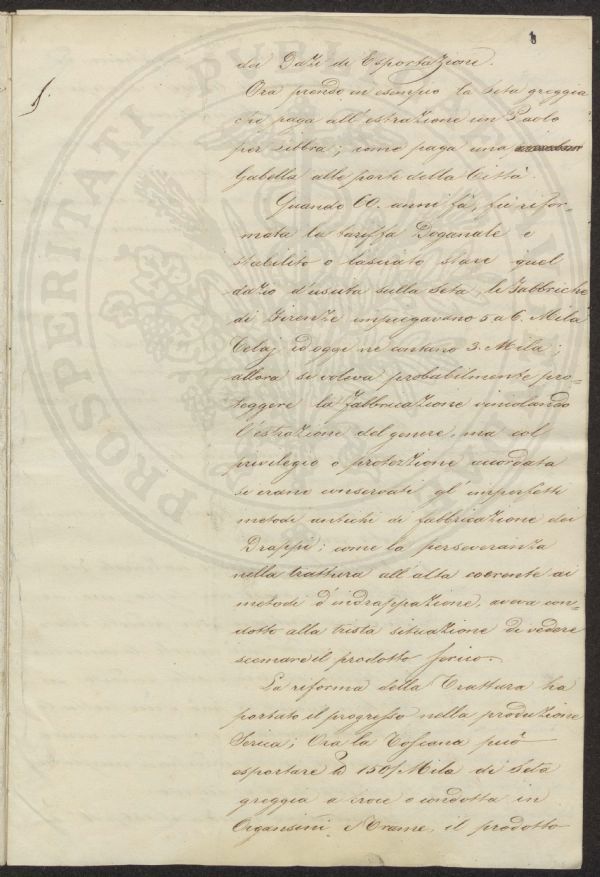 8
dei Dazi di Esportazione.
Ora prendo in esempio la seta greggia
che paga all'estrazione un Paolo
per libbra; come paga una
Gabella alle porte della Città.
Quando 60. anni fà, fu rifor-
mata la tariffa Doganale e
stabilito o lasciato stare quel
dazio d'uscita sulla seta, le Fabbriche
di Firenze impiegavano 5 a 6. Mila
Telaj, ed oggi ne contano 3. Mila;
allora si voleva probabilmente pro-
teggere la fabbricazione vincolando
l'estrazione del genere, ma col
privilegio o protezione accordata
si erano conservati gl'imperfetti
metodi antichi di fabbricazione dei
Drappi; come la perseveranza
nella trattura all'alta coerente ai
metodi d'indrappazione, aveva con-
dotto alla trista situazione di vedere
scemare il prodotto serico.
La riforma della Trattura ha
portato il progresso nella produzione
Serica; Ora la Toscana può
esportare 150/Mila di Seta
greggia a croce o condotta in
Organsini, e Trame, il prodotto
PROSPERITATI PVBLICAE